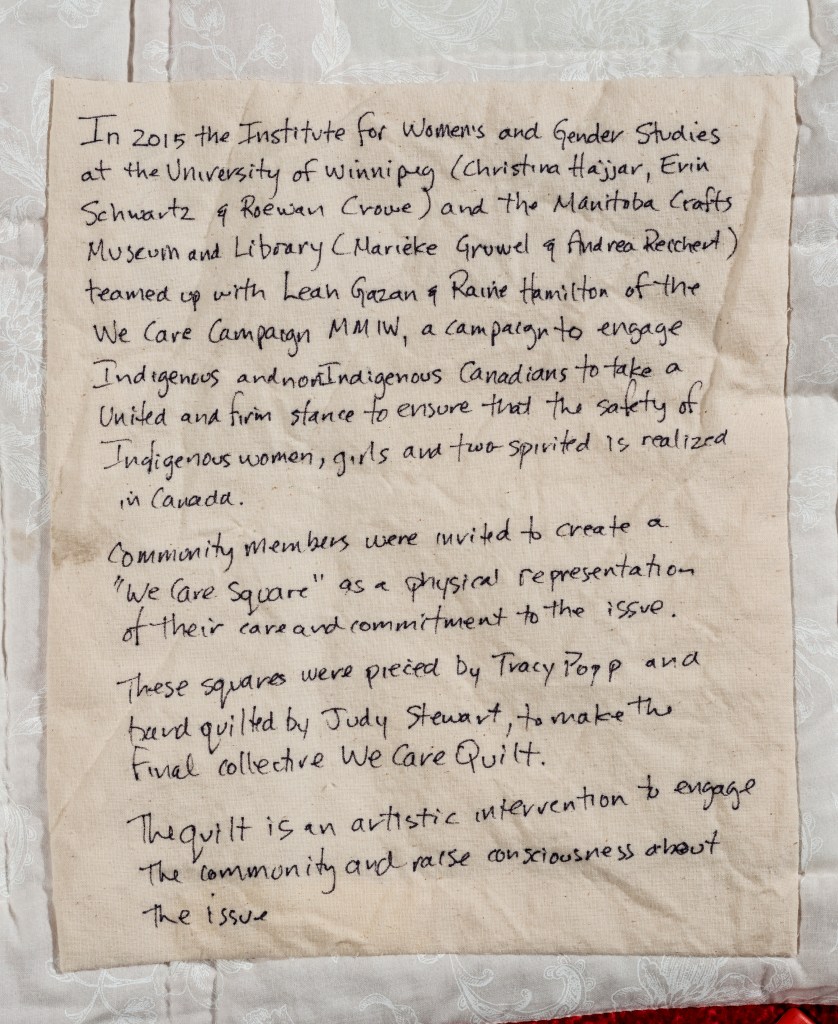 In 2015 the Institute for Women's and Gender Studies
at the University of Winnipeg (Christina Hajjar, Erin
Schwartz & Roewan Crowe) and the Manitoba Crafts
Museum and Library (Marieke Gruwel & Andrea Reichert)
teamed up with Leah Gazan & Raine Hamilton of the
We Care Campaign MMIW, a campaign to engage
Indigenous and non Indigenous Canadians to take a
United and firm stance to ensure that the safety of
Indigenous women, girls and two-spirited is realized
in Canada.
Community members were invited to create a
"We Care Square" as a physical representation
of their care and commitment to the issue.
These squares were pieced by Tracy Popp and
hand quilted by Judy Stewart, to make the
Final collective We Care Quilt.
The quilt is an artistic intervention to engage
the community and raise consciousness about
the issue